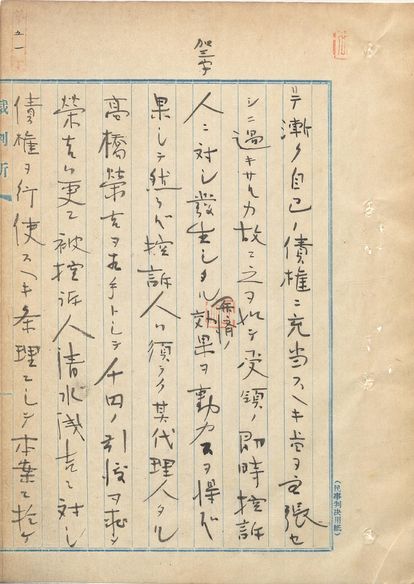 ニテ漸ク自己ノ債権ニ充当スヘキ旨ヲ主張セ
シニ過キサルカ故ニ之ヲ以テ受領ノ即時控訴
人ニ対シ發生シタル弁済ノ効果ヲ動カスヲ得ス
果シテ然ラハ控訴人ハ須ラク其代理人タル
高橋榮吉ヲ相手トシテ千円ノ引渡ヲ求メ
榮吉ハ更ニ被控訴人清水浅吉ニ対シ
債権ヲ行使スヘキ条理ニシテ本案ニ於ケ
(民事判決用紙)
裁判所